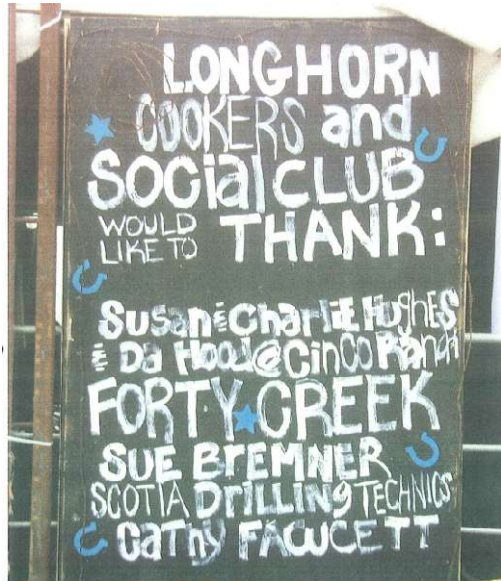 LONGHORN
COOKERS and
SOCial CLUB
WOULD
LIKE TO THANK:
Susan & CharliE HughES
& Da Hood @ CinCo Ranch
FORTY CREEK
SUE BrEMNER
SCOTIA DrilliNg TECHNICS
CaThy FAWCETT